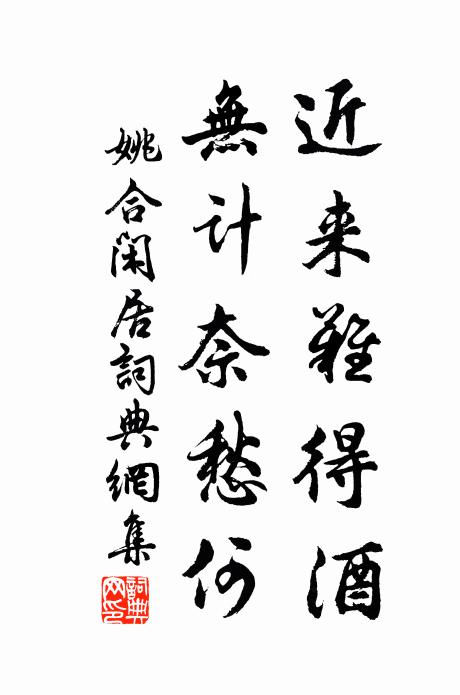 近来難得酒
無计奈愁何
姚合閑居詞典網集
詞典网印